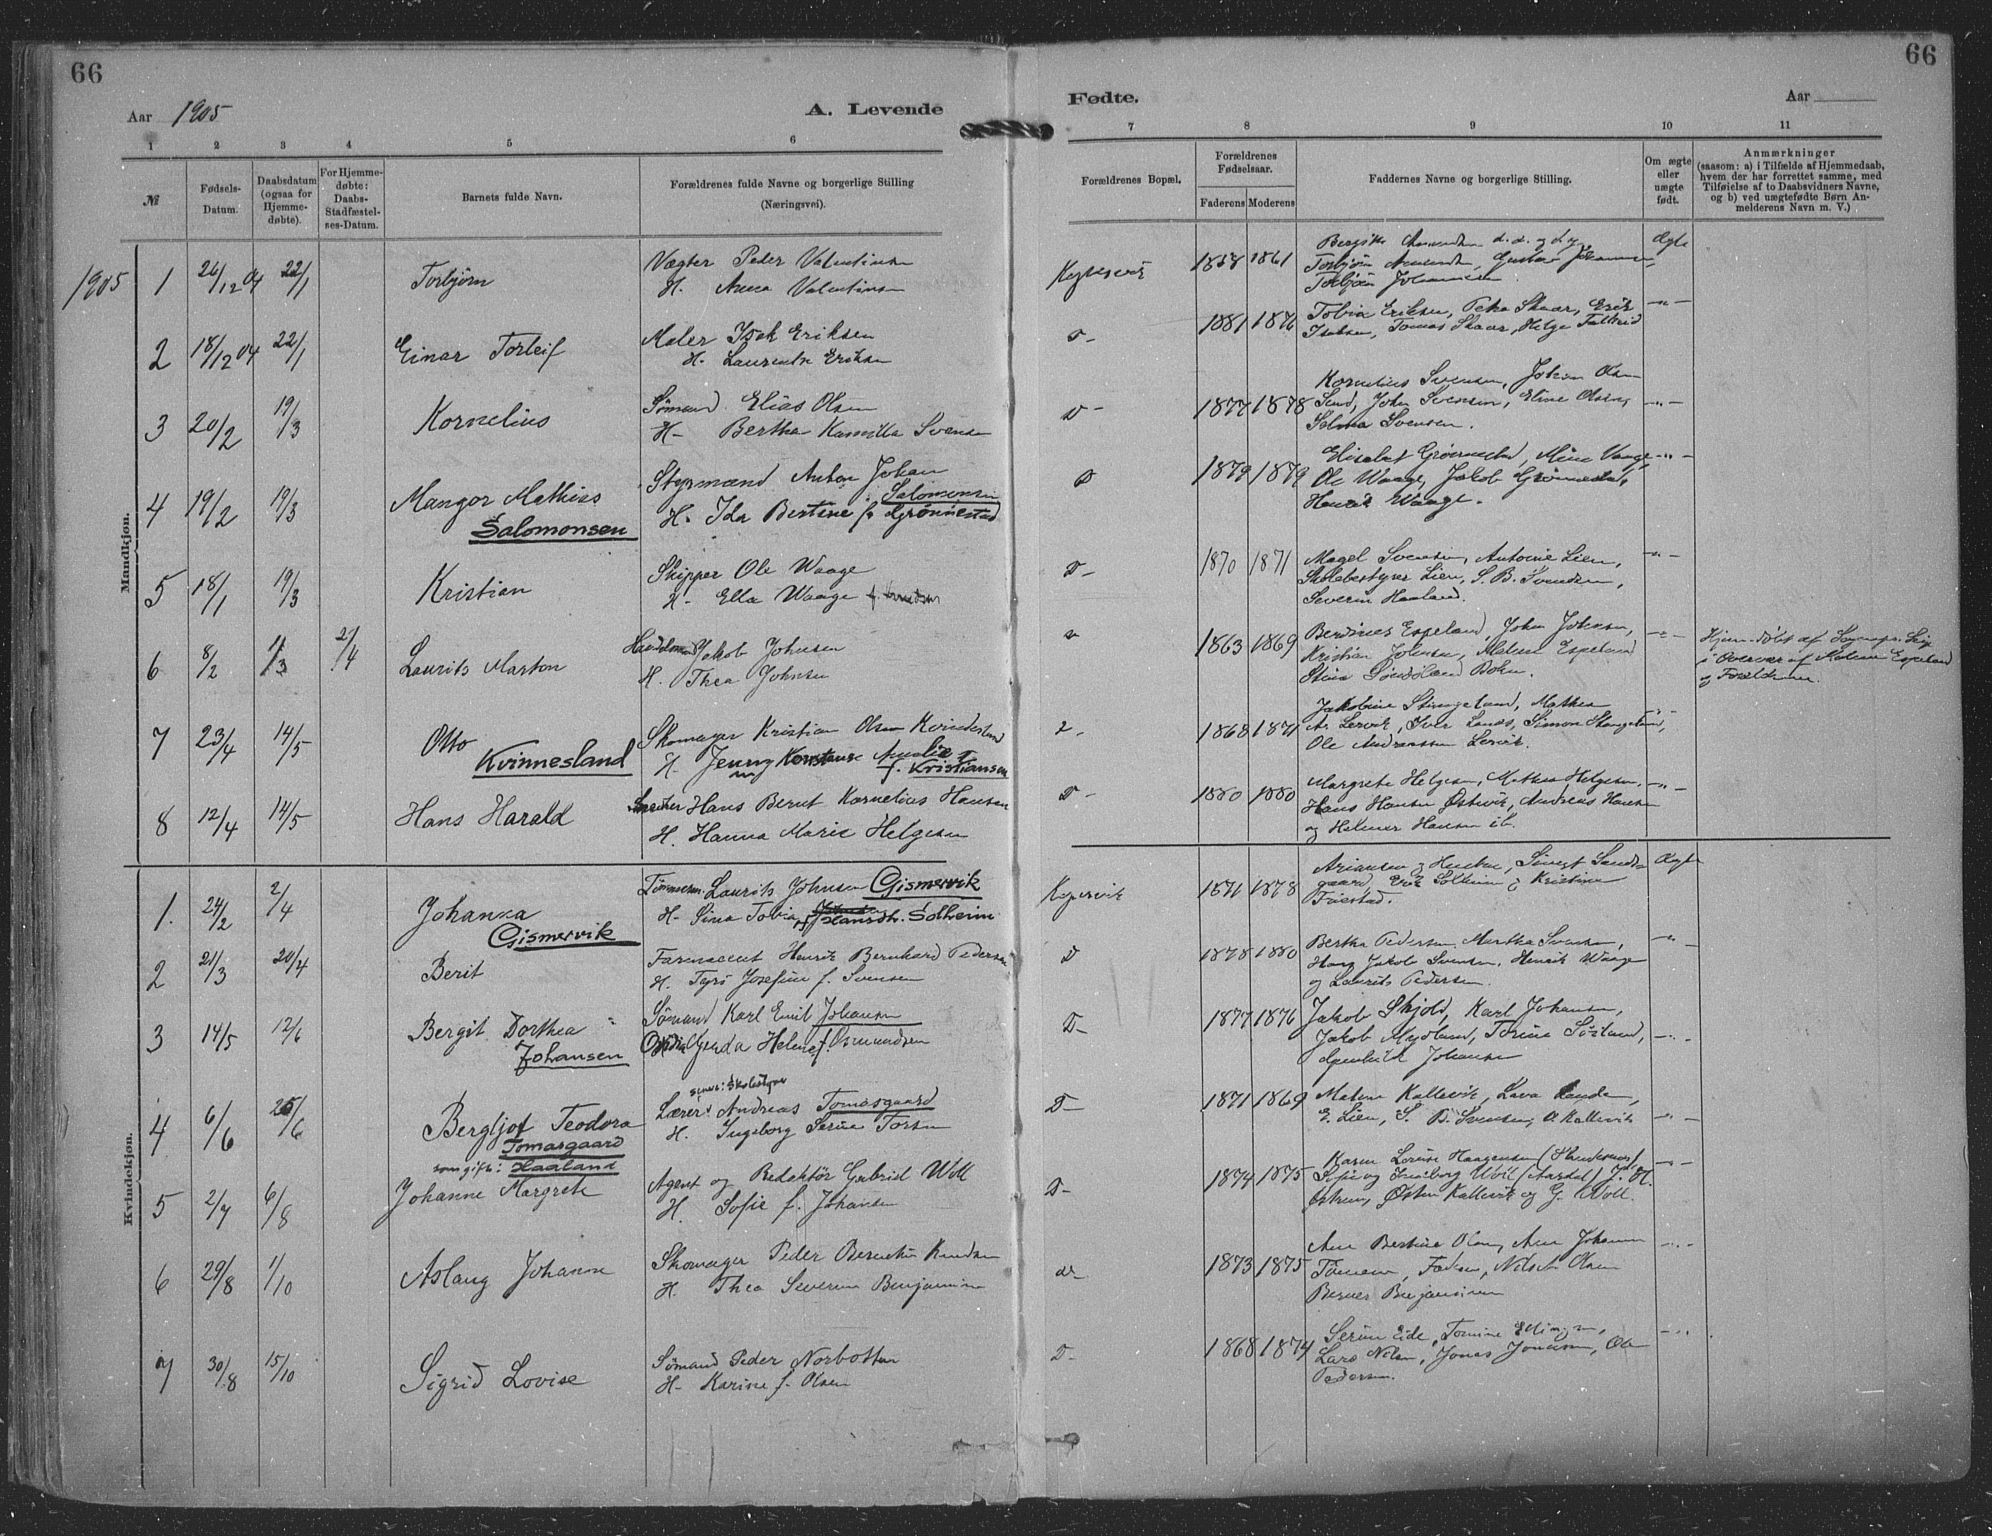 66
Aar 1905
A. Levende
1 2 3 4 5 6
№
Fødsels-Datum.
Daabsdatum (ogsaa for Hjemmedøbte).
For Hjemmedøbte: Daabs-Stadfæstelses-Datum.
Barnets fulde Navn.
Forældrenes fulde Navne og borgerlige Stilling (Næringsvei).
Mandkjøn.
1905 1 26/12 04 22/1 Torbjørn
Vægter Peder Valentinsen
H. Anna Valentinsen
2 18/12 04 22/1 Einar Torleif
Maler Isak Eriksen
H. Laurentse Eriksen
3 20/2 19/3 Kornelius
Sømand Elias Olsen
H- Bertha Kamilla Svensen
4 19/2 19/3 Mangor Mathias
Salomonsen
Styrmand Anton Johan
Salomonsen
H. Ida Bertine f. Grønnestad
5 18/1 19/3 Kristian
Skipper Ole Waage
H. Ella Waage f. Knudsen
6 8/2 1/3 2/4 Laurits Marton
Handelsmand Jakob Johnsen
H. Thea Johnsen
7 23/4 14/5 Otto
Kvinnesland
Skomager Kristian Olsen Kvindesland
H. Jenny Konstanse Amalie
f. Kristiansen
8 12/4 14/5 Hans Harald
Hans Bernt Kornelius Hansen
H. Hanna Marie Helgesen
Kvindekjøn.
1. 24/2 2/4 Johanna
Gismervik
Laurits Johnsen Gismervik
H- Sina Tobia f. Hansdtr. Solheim
2 21/3 20/4 Berit
Farmaceut Henrik Bernhard Pedersen
H. Tyra Josefine f. Svensen
3 14/5 12/6 Bergit Dorthea
Johansen
Sømand Karl Emil Johansen
Gjerda Helene f. Osmundsen
4 6/6 25/6 Bergljot Teodora
Tomasgaard
som gift: Haaland
senere: Skolestyrer
Lærer Andreas Tomasgaard
H. Ingeborg Serine
5 2/7 6/8 Johanne Margrete
Agent og Redaktør Gabriel Woll
H. Sofie f. Johansen
6 29/8 1/10 Aslaug Johanne
Skomager Peder Berentin Knudsen
H. Thea Severine Benjaminsen
7 30/8 15/10 Sigrid Lovise
Sømand Peder Norbotten
H- Karine f. Olsen
66
Fødte.
Aar
7 8 9 10 11
Forældrenes Bopæl.
Forældrenes Fødselsaar.
Faderens Moderens
Faddernes Navne og borgerlige Stilling.
Om ægte eller uægte født.
Anmærkninger
(saasom: a) i Tilfælde af Hjemmedaab, hvem der har forrettet samme, med Tilføielse af to Daabsvidners Navne, og b) ved uægtefødte Børn Anmelderens Navn m. V.)
Kopervik 1858 1861
Bergitte Amundsen d. d. og d. y.
Torbjørn Amundsen, Gustav Johannesen,
Torbjørn Johannesen
Ægte
D- 1881 1876
Tobia Eriksen, Petra Skaar, Erik
Isaksen, Tomas Skaar, Helge
-"-
D- 1877 1878
Kornelius Svensen, Johan Olsen
Sund, John Svensen, Eline Olsen,
Salma Svensen.
-"-
D 1879 1879
Elisabet Grønnestad, Mine Vaage,
Ole Waage, Jakob Grønnestad,
Henrik Waage.
-"-
D- 1870 1871
Magel Svensen, Antonie Lien,
Skolebestyrer Lien, S. B. Svendsen,
Severin Haaland.
-"-
1863 1869
Berdines Espeland, John Johnsen,
Kristian Johnsen, Malene Espeland
Stina Bokn.
-"-
Hjem.døbt af Sognepr.
i Overvær af Malene Espeland
og Forældrene
1868 1871
Jakobine Stangeland, Mathea
Lervik, Iver Lunds, Simon Stangeland,
Ole Andreassen Lervik.
-"-
D- 1880 1880
Margrete Helgesen, Mathea Helgesen,
Hans Hansen Østevik, Andreas Hansen
og Helmer Hansen ib.
-"-
Kopervik 1871 1878
Ariansen og Hustru,
gaard, Erik Solheim og Kristine
Ægte
D 1878 1880
Bertha Pedersen, Martha Svensen,
Hans Jakob Svensen, Henrik Waage
og Laurits Pedersen.
-"-
D- 1877 1876
Jakob Skjold, Karl Johansen,
Jakob Mydland, Torine Sørland,
Johansen
-"-
D- 1871 1869
Malene Kallevik, Lava Lande,
E. Lien, S. B. Svensen, O. Kallevik
-"-
D- 1874 1875
Karen Lovise Haagensen (Skudesnes),
Sofie og Ingeborg Woll (Aardal), J. H.
Østrem, Østen Kallevik og G. Woll.
-"-
1873 1875
Ane Bertine Olsen, Ane Johannesen
Nilsen Olsen
Berner Benjaminsen
-"-
D- 1868 1874
Serine Eide, Tomine
Lars Nilsen, Jonas Jonassen, Ole
Pedersen.
-"-